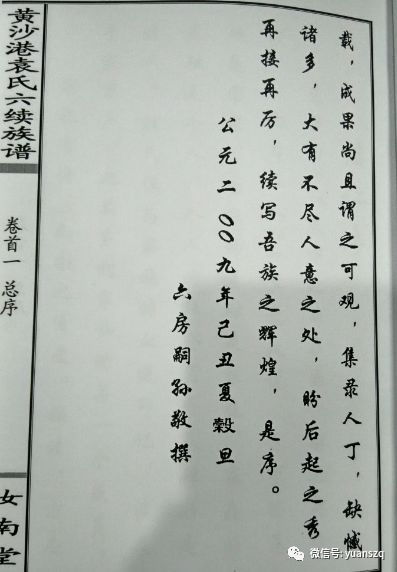 载，成果尚且谓之可观，集录人丁，缺憾
诸多，大有不尽人意之处，盼后起之秀
再接再厉，续写吾族之辉煌，是序。
公元二〇〇九年己丑夏榖旦
六房嗣孙敬撰
黄沙港袁氏六续族谱
卷首一 总序
汝南堂
微信号: yuanszq